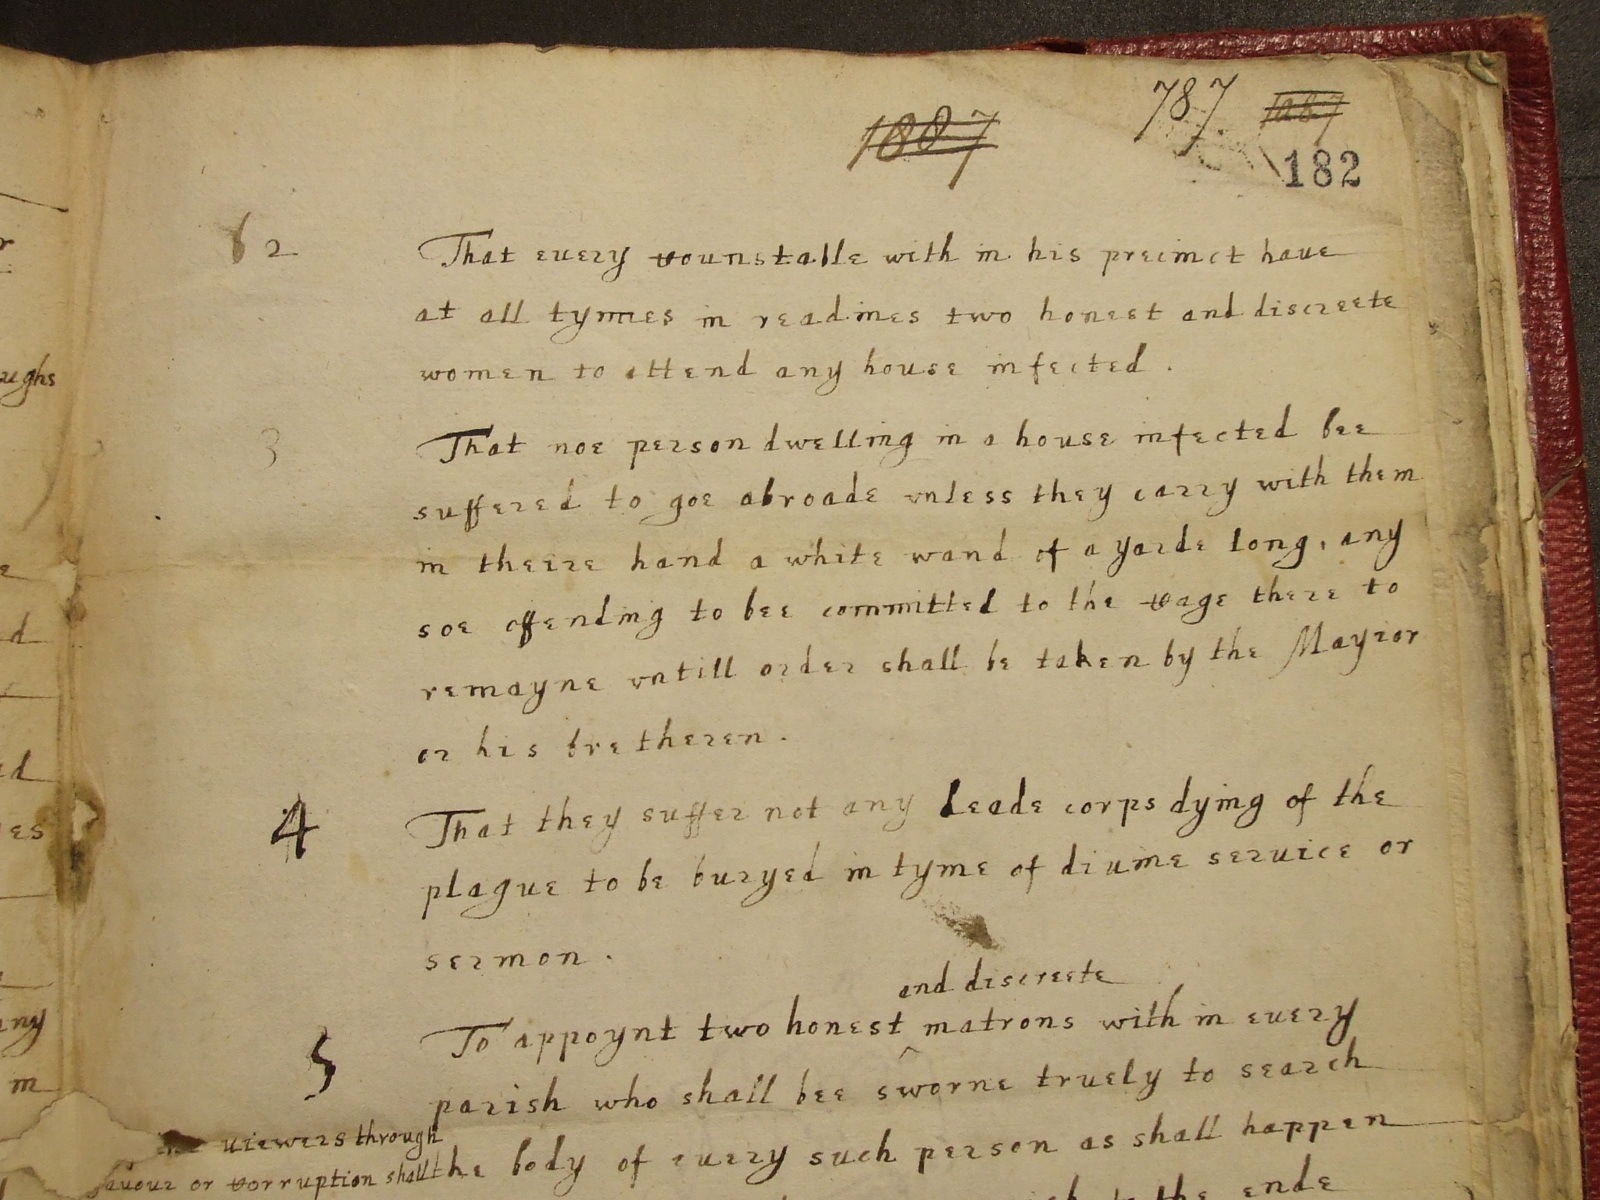 1887
787. 1887
182
2 That euery Counstable with in his precinct haue
at all tymes in readines two honest and discreete
women to attend any house infected.
3 That noe person dwelling in a house infected bee
suffered to goe abroade vnless they carry with them
in theire hand a white wand of a yarde long, any
soe offending to bee committed to the Cage there to
remayne vntill order shall be taken by the Mayror
or his bretheren.
4 That they suffer not any deade corps dying of the
plague to be buryed in tyme of diuine seruice or
sermon.
and discreete
5 To appoynt two honest ^ matrons with in euery
parish who shall bee sworne truely to search
the body of euery such person as shall happen
to the ende
viewers through
sauour or Corruption shall
ughs
d
es
any
m